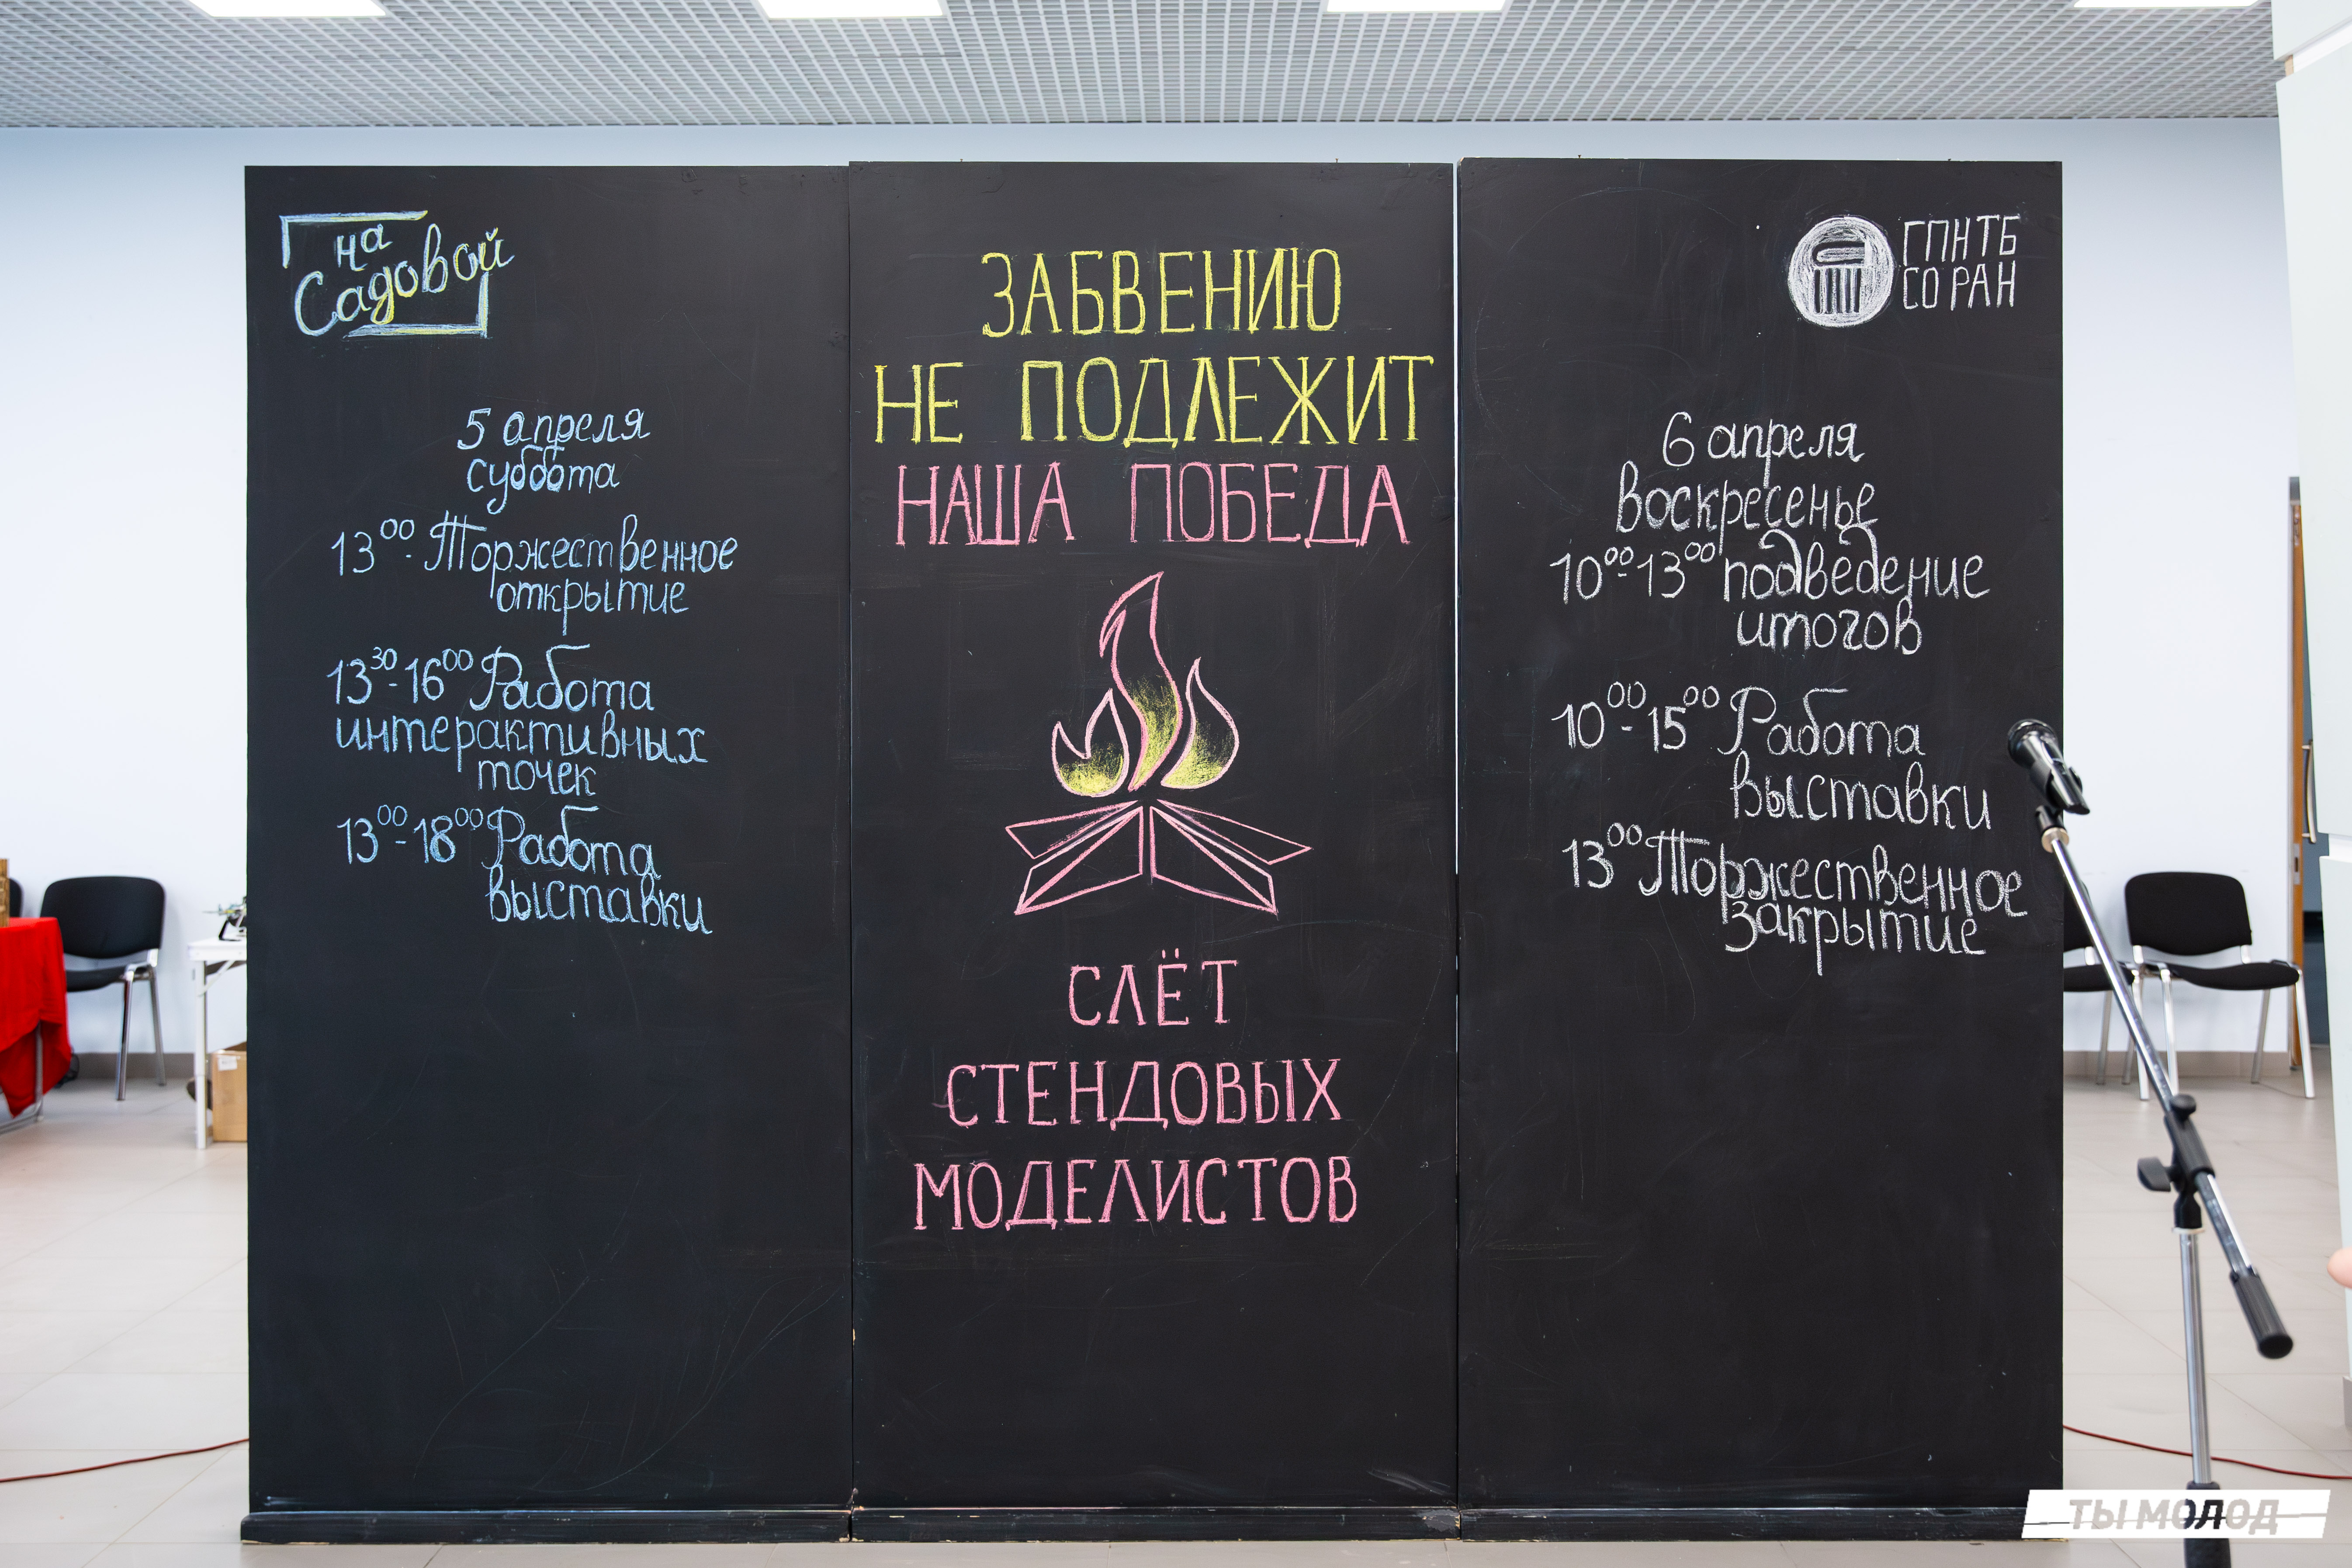 на
Садовой
5 апреля
суббота
13⁰⁰- Торжественное
открытие
13³⁰-16⁰⁰ Работа
интерактивных
точек
13⁰⁰-18⁰⁰ Работа
выставки
ЗАБВЕНИЮ
НЕ ПОДЛЕЖИТ
НАША ПОБЕДА
СЛЁТ
СТЕНДОВЫХ
МОДЕЛИСТОВ
ГПНТБ
СО РАН
6 апреля
воскресенье
10⁰⁰-13⁰⁰ подведение
итогов
10⁰⁰-15⁰⁰ Работа
выставки
13⁰⁰ Торжественное
закрытие
ТЫ МОЛОД